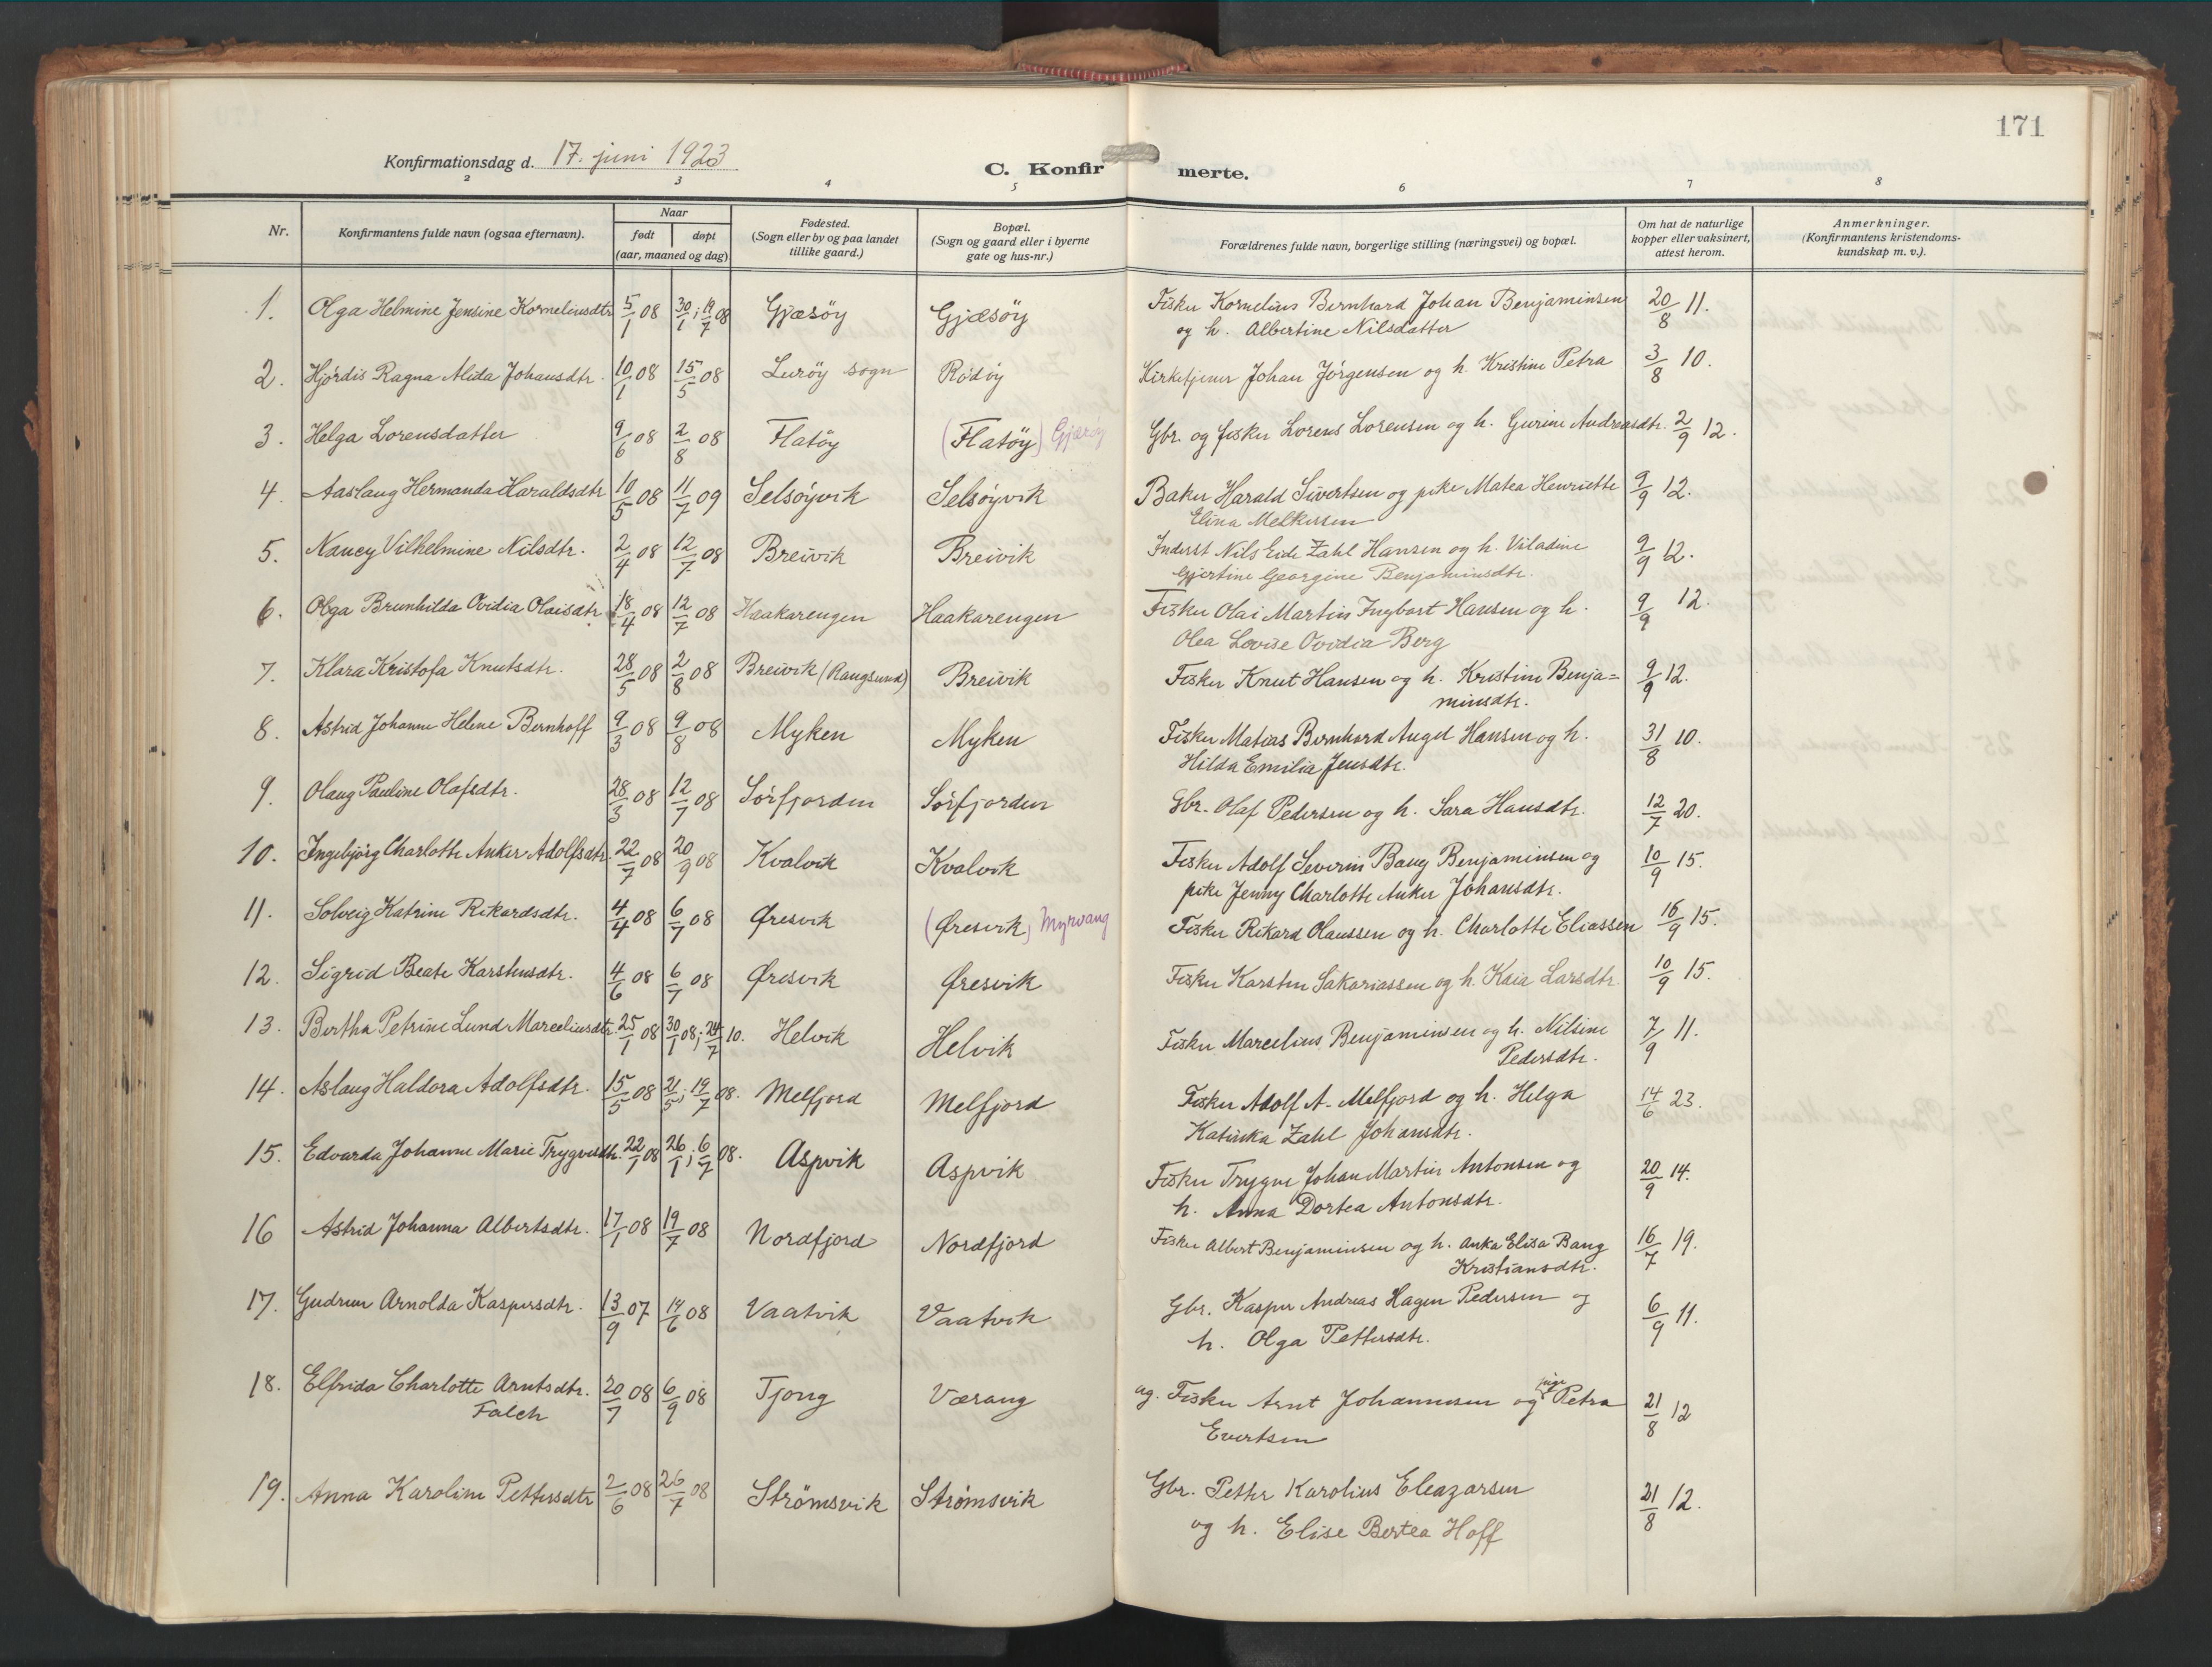 171
Konfirmationsdag d. 17. juni 1923
C. Konfirmerte.
2 3 4 5 6 7 8
Nr.
Konfirmantens fulde navn (ogsaa efternavn).
Naar
født døpt
(aar, maaned og dag)
Fødested.
(Sogn eller by og paa landet
tillike gaard.)
Bopæl.
(Sogn og gaard eller i byerne
gate og hus-nr.)
Forældrenes fulde navn, borgerlige stilling (næringsvei) og bopæl.
Om hat de naturlige
kopper eller vaksinert,
attest herom.
Anmerkninger.
(Konfirmantens kristendoms-
kundskap m. v.).
1. Olga Helmine Jensine Korneliusdtr 5/1 08 30/1; 19/7 08 Gjæsöy Gjæsöy Fisker Kornelius Bernhard Johan Benjaminsen 20/8 11.
og h. Albertine Nilsdatter
2. Hjördis Ragna Alida Johansdtr. 10/1 08 15/5 08 Luröy sogn Rödöy Kirketjener Johan Jörgensen og h. Kristine Petra 3/8 10.
3. Helga Lorensdatter 9/6 08 2/8 08 Flatöy (Flatöy) Gjæröy Gbr. og fisker Lorens Lorensen og h. Gurine Andreasdtr. 2/9 12.
4. Aaslaug Hermanda Haraldsdtr 10/5 08 11/7 09 Selsöyvik Selsöyvik Baker Harald Sivertsen og pike Matea Henriette 9/9 12.
Elina Melkersen
5. Nancy Vilhelmine Nilsdtr. 2/4 08 12/7 08 Breivik Breivik Inderst Nils Eide Zahl Hansen og h. Viladine 9/9 12.
Gjertine Georgine Benjaminsdtr.
6. Olga Brunhilda Ovidia Olaisdtr 18/4 08 12/7 08 Haakarengen Haakarengen Fisker Olai Martin Ingbart Hansen og h. 9/9 12.
Olea Lovise Ovidia Berg
7. Klara Kristofa Knutsdtr. 28/5 08 2/8 08 Breivik (Rangsund) Breivik Fisker Knut Hansen og h. Kristine Benja= 9/9 12.
minsdtr.
8. Astrid Johanne Helene Bernhoff 9/3 08 9/8 08 Myken Myken Fisker Matias Bernhard Angel Hansen og h. 31/8 10.
Hilda Emilia Jensdtr.
9. Olaug Pauline Olafsdtr. 28/3 08 12/7 08 Sörfjorden Sörfjorden Gbr. Olaf Pedersen og h. Sara Hansdtr. 12/7 20.
10. Ingebjörg Charlotte Anker Adolfsdtr. 22/7 08 20/9 08 Kvalvik Kvalvik Fisker Adolf Severin Bang Benjaminsen og 10/9 15.
pike Jenny Charlotte Anker Johansdtr.
11. Solveig Katrine Rikardsdtr. 4/4 08 6/7 08 Øresvik (Øresvik) Myrvang Fisker Rikard Olaussen og h. Charlotte Eliassen 16/9 15.
12. Sigrid Beate Karstensdtr. 4/6 08 6/7 08 Øresvik Øresvik Fisker Karsten Sakariassen og h. Kaia Larsdtr. 10/9 15.
13. Bertha Petrine Lund Marceliusdtr. 25/1 08 30/1 08; 24/7 10. Helvik Helvik Fisker Marcelius Benjaminsen og h. Nilsine 7/9 11.
Pedersdtr.
14. Aslaug Haldora Adolfsdtr. 15/5 08 21/5; 19/7 08. Melfjord Melfjord Fisker Adolf A. Melfjord og h. Helga 14/6 23.
Katinka Zahl Johansdtr.
15. Edvarda Johanne Marie Trygvesdtr. 22/1 08 26/1; 6/7 08. Aspvik Aspvik Fisker Trygve Johan Martin Antonsen og 20/9 14.
h. Anna Dortea Antonsdtr.
16 Astrid Johanna Albertsdtr. 17/1 08 19/7 08 Nordfjord Nordfjord Fisker Albert Benjaminsen og h. Anka Elisa Bang 16/7 19.
Kristiansdtr.
17. Gudrun Arnolda Kaspersdtr. 13/9 07 14/6 08 Vaatvik Vaatvik Gbr. Kasper Andreas Hagen Pedersen og 6/9 11.
h. Olga Pettersdtr.
18. Elfrida Charlotte Arntsdtr. 20/7 08 6/9 08 Tjong Værang ug. Fisker Arnt Johannesen og pige Petra 21/8 12
Falch Evertsen
19. Anna Karoline Pettersdtr 2/6 08 26/7 08 Strömsvik Strömsvik Gbr. Petter Karolius Eleazarsen 21/8 12.
og h. Elise Bertea Hoff